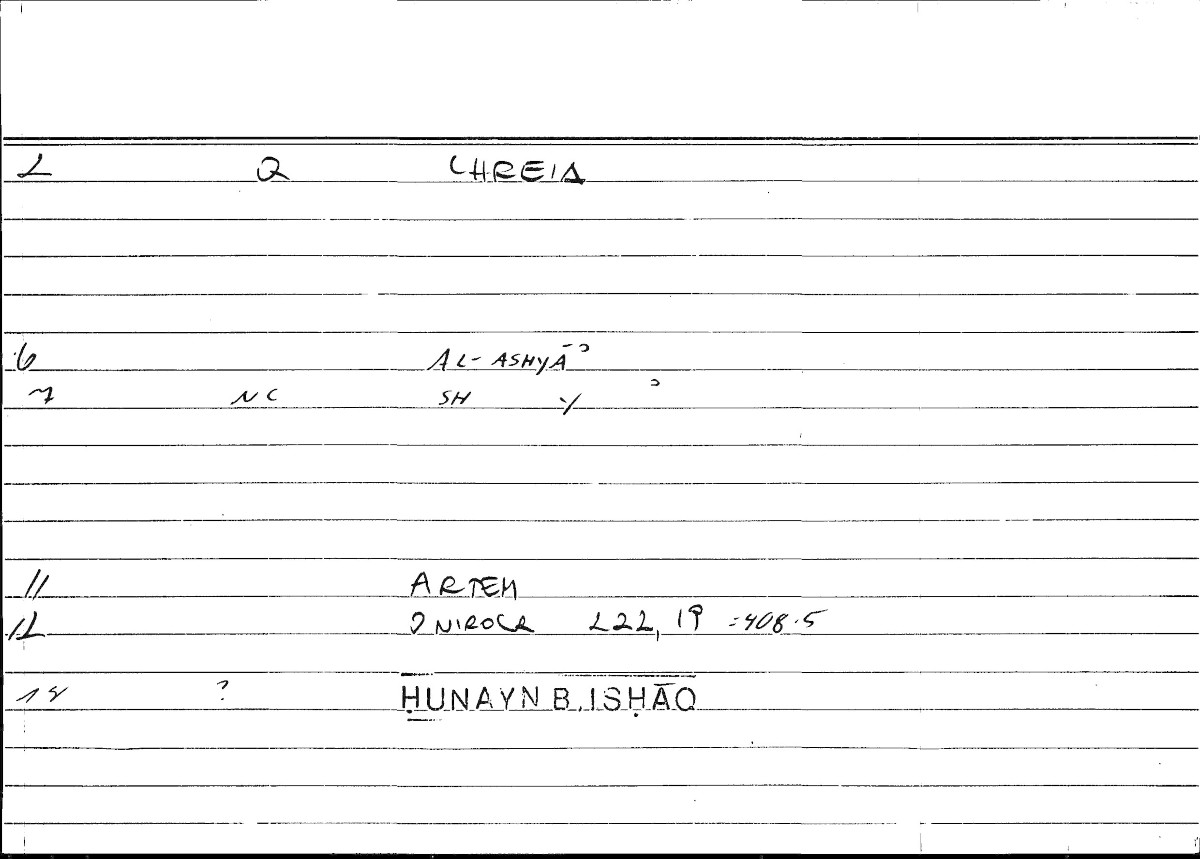 2 Q CHREIA
6 AL-ASHYĀʾ
7 NC SH Y ʾ
11 ARTEM
12 ONIROCR 222, 19 = 408.5
14 ? ḤUNAYN B. ISḤĀQ